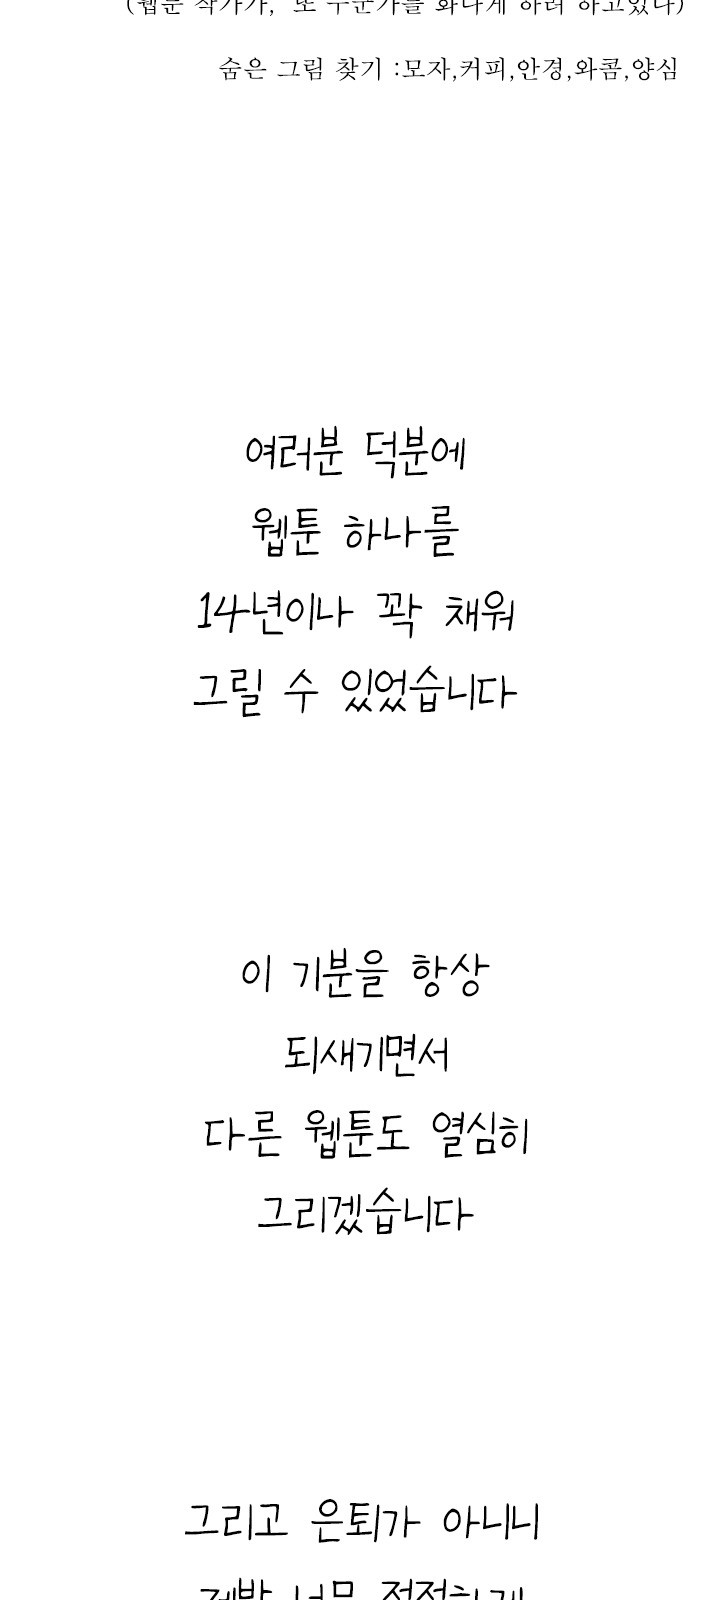 (웹툰 작가가, 또 누군가를 화나게 하려 하고있다)
숨은 그림 찾기 :모자,커피,안경,와콤,양심
여러분 덕분에
웹툰 하나를
14년이나 꽉 채워
그릴 수 있었습니다
이 기분을 항상
되새기면서
다른 웹툰도 열심히
그리겠습니다
그리고 은퇴가 아니니
제발 너무